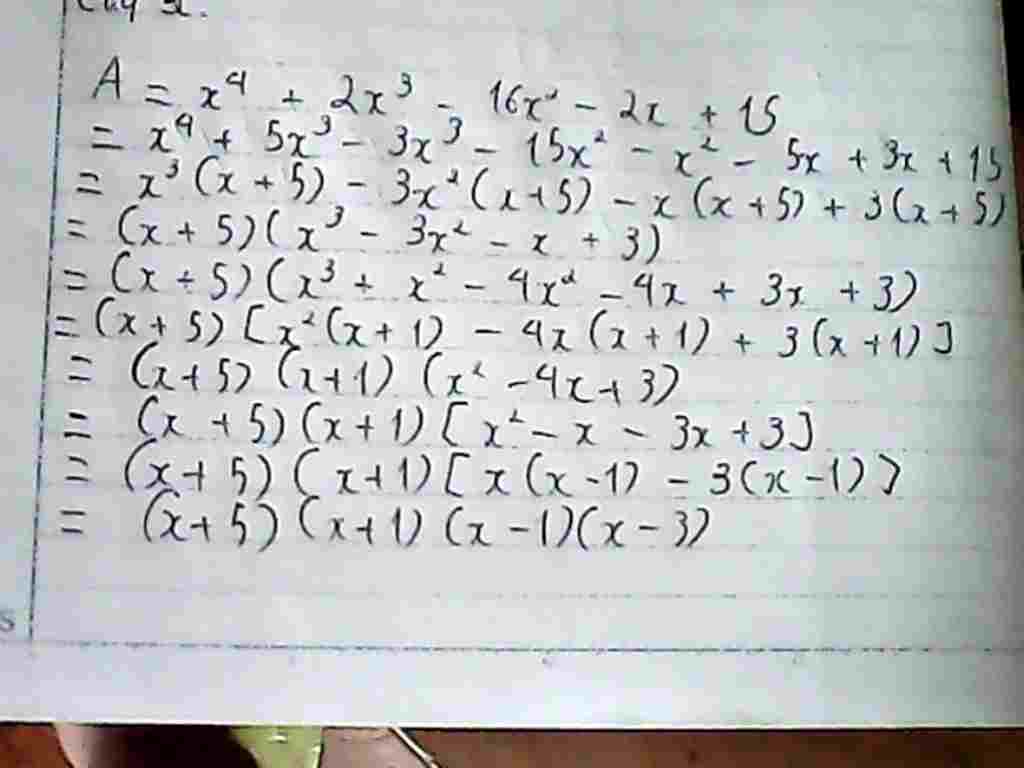 A = x⁴ + 2x³ - 16x² - 2x + 15
= x⁴ + 5x³ - 3x³ - 15x² - x² - 5x + 3x + 15
= x³(x + 5) - 3x²(x + 5) - x(x + 5) + 3(x + 5)
= (x + 5)(x³ - 3x² - x + 3)
= (x + 5)(x³ + x² - 4x² - 4x + 3x + 3)
= (x + 5)[x²(x + 1) - 4x(x + 1) + 3(x + 1)]
= (x + 5)(x + 1)(x² - 4x + 3)
= (x + 5)(x + 1)[x² - x - 3x + 3]
= (x + 5)(x + 1)[x(x - 1) - 3(x - 1)]
= (x + 5)(x + 1)(x - 1)(x - 3)